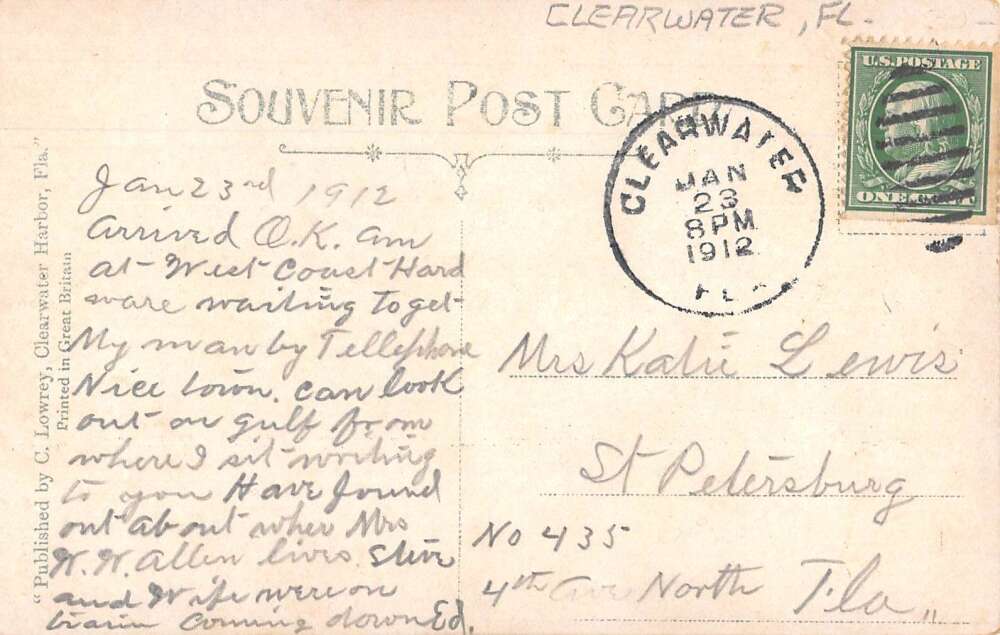 CLEARWATER, FL.
U.S. POSTAGE
ONE CENT
SOUVENIR POST CARD
CLEARWATER
JAN
23
8 PM
1912
FLA
"Published by C. Lowrey, Clearwater Harbor, Fla."
Printed in Great Britain
Jan 23rd 1912
Arrived O.K. am
at West Coast Hard
ware waiting to get
My man by Tellephone
Nice town. can look
out on gulf from
where I sit writing
to you Have found
out about wher Mrs
W. W. Allen lives. Steve
and Wife were on
train coming down Ed.
Mrs Katie Lewis
St Petersburg
No 435
4th Ave North Fla,,